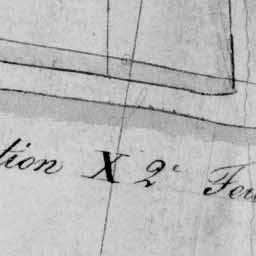 tion X 2e Feu